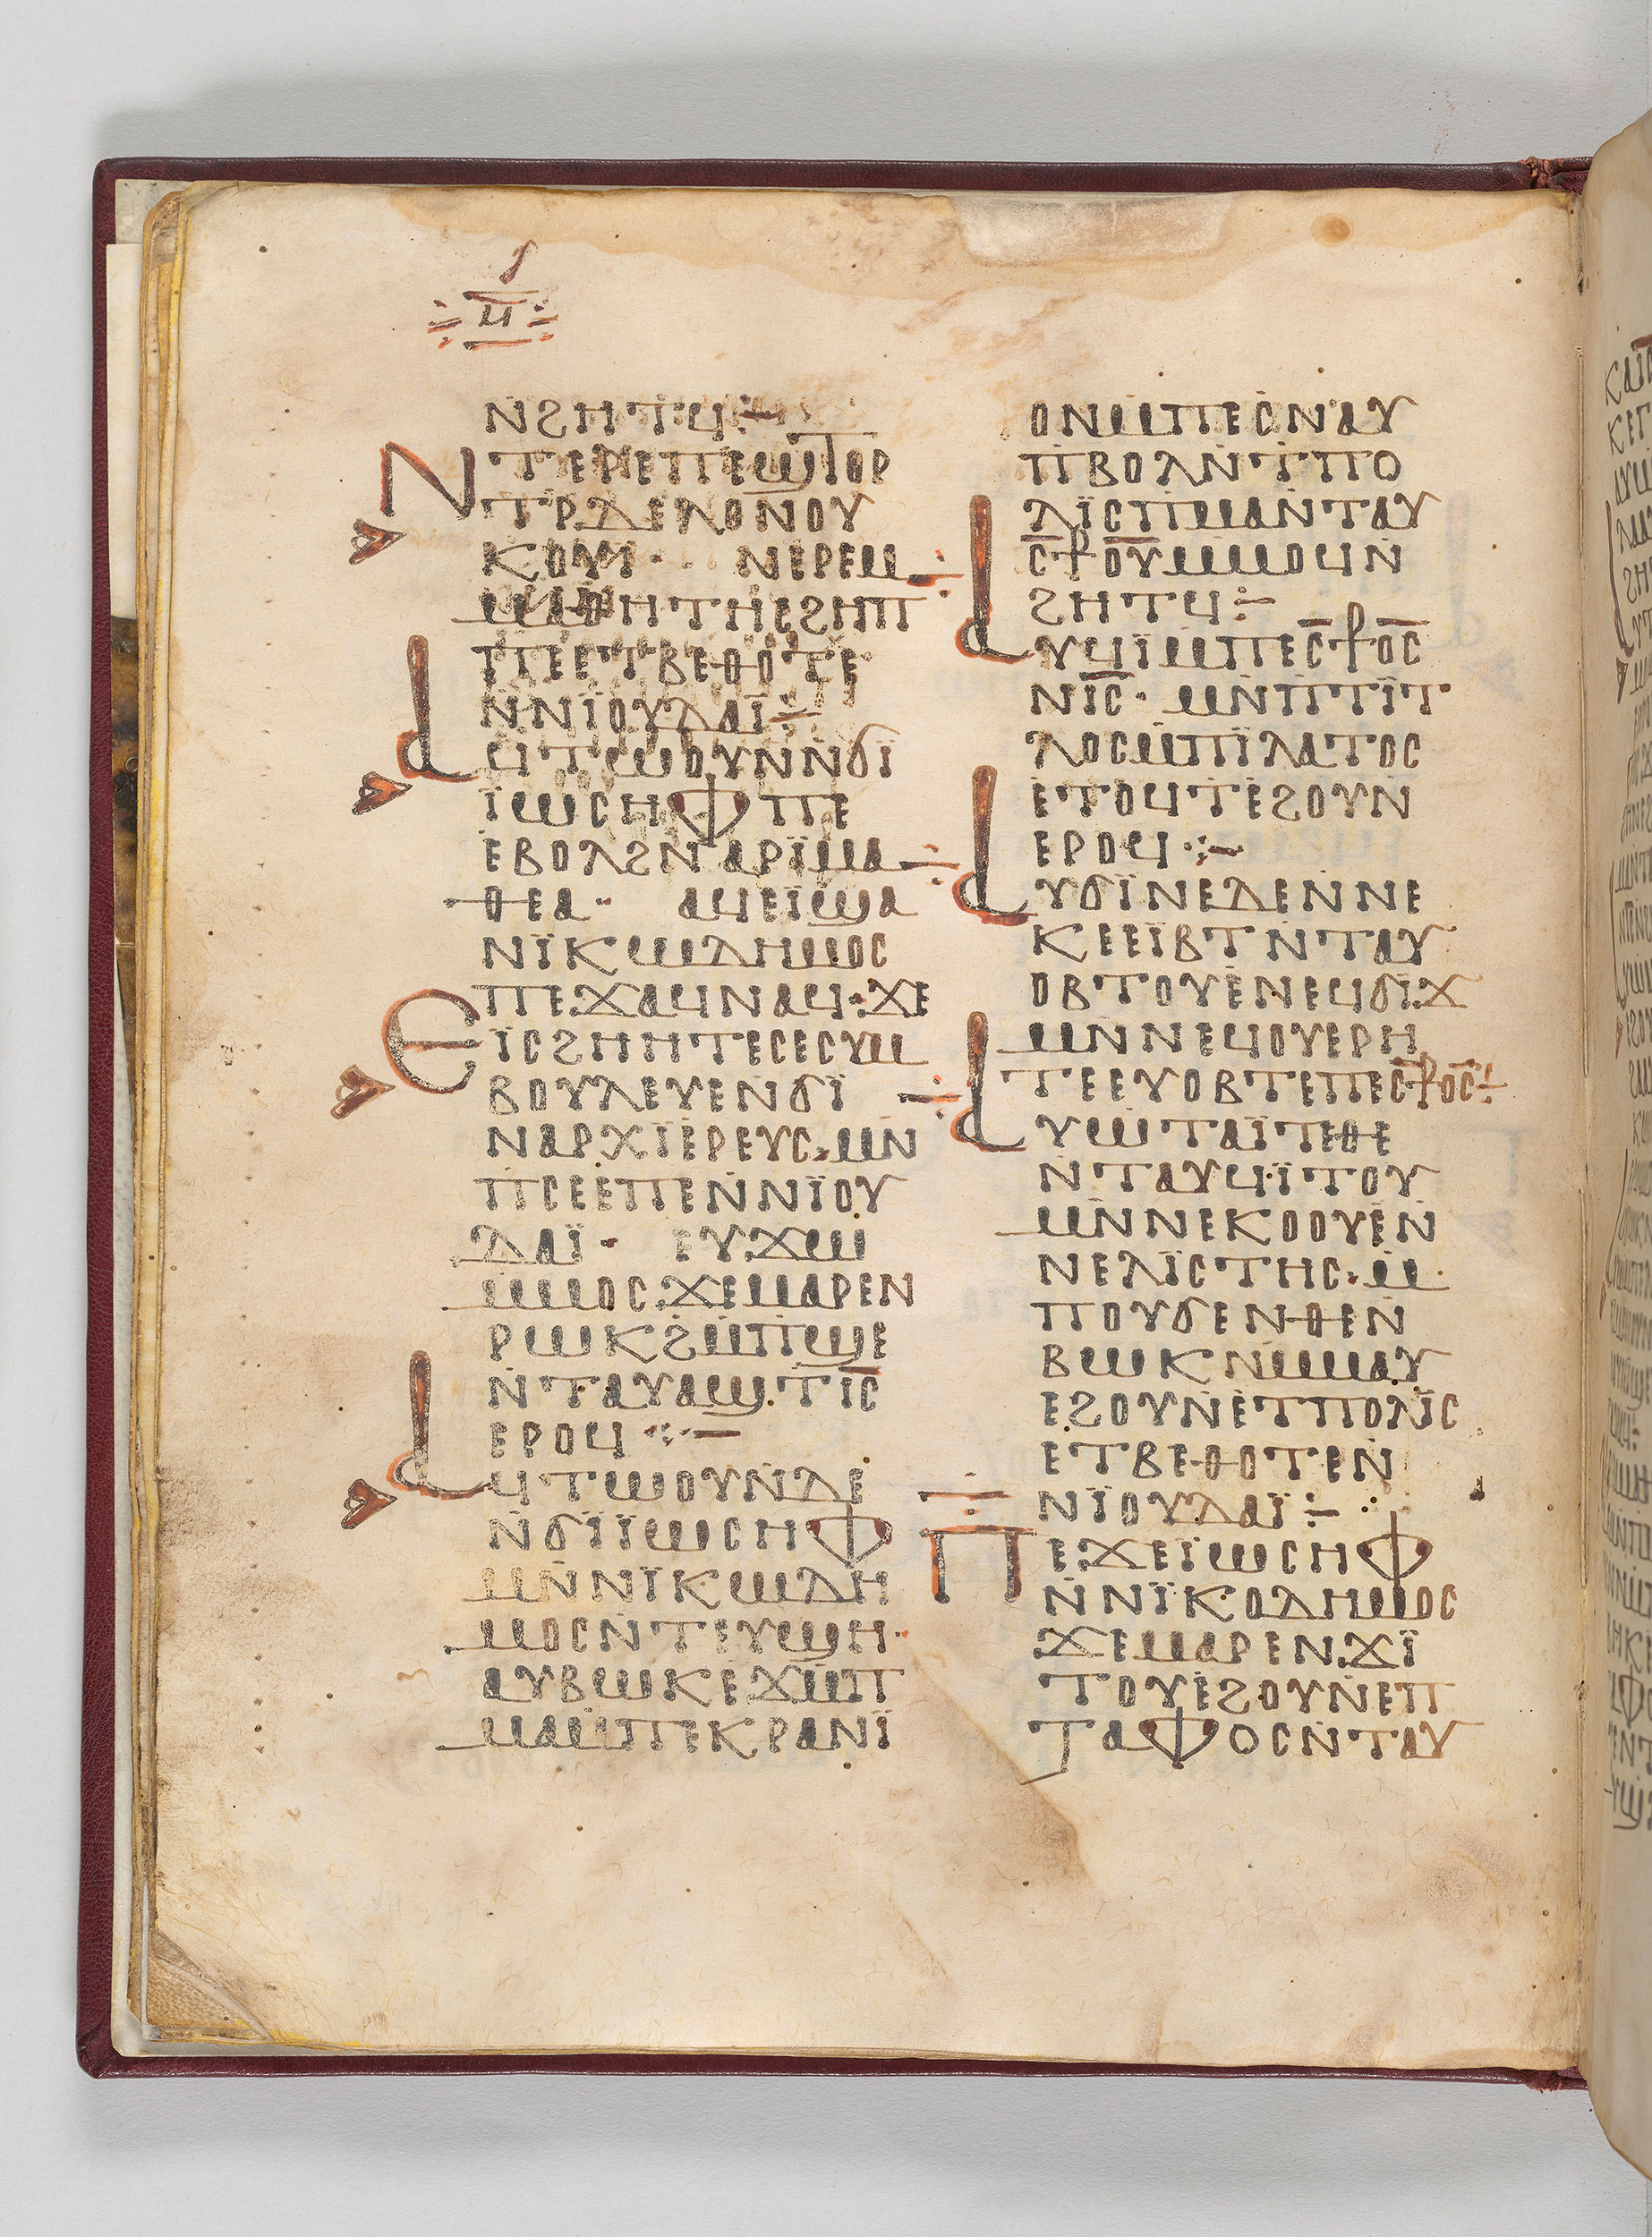 ϥ
ⲛ̇ϩⲏⲧϥ:–
ⲛⲧⲉⲣⲉⲡⲉϣⲧⲟⲣ
ⲧⲣ̇ⲇⲉⲗⲟⲛⲟⲩ
ⲕⲟⲩⲓ· ⲛⲉⲣⲉⲙ
ⲙⲁⲑⲏⲧⲏⲥϩⲏⲡ
ⲡⲉⲉⲧⲃⲉⲑⲟⲧⲉ
ⲛ̇ⲛⲓ̈ⲟⲩⲇⲁⲓ̈:–
ⲁϥⲧⲱⲟⲩⲛⲛ̇ϭⲓ̈
ⲓ̈ⲱⲥⲏⲫⲡⲉ
ⲉ̇ⲃⲟⲗϩⲛ̇ⲁⲣⲓ̈ⲙⲁ
ⲑⲉⲁ· ⲁϥⲉⲓ̈ϣⲁ
ⲛⲓ̈ⲕⲱⲇⲏⲙⲟⲥ
ⲡⲉϫⲁϥⲛⲁϥ·ϫⲉ
ⲉⲓ̈ⲥϩⲏⲏⲧⲉⲥⲉⲥⲩⲙ
ⲃⲟⲩⲗⲉⲩⲉⲛ̇ϭⲓ̈
ⲛⲁⲣⲭⲓ̈ⲉⲣⲉⲩⲥ·ⲙⲛ̇
ⲡ̇ⲥⲉⲉ̇ⲡⲉⲛ̇ⲛⲓ̈ⲟⲩ
ⲇⲁⲓ̈· ⲉⲩϫⲱ̇
ⲙⲙⲟⲥ·ϫⲉⲙⲁⲣⲉⲛ
ⲣⲱⲕϩⲙ̇ⲡ̇ϣⲉ
ⲛ̇ⲧⲁⲩⲁϣⲧⲓ̅ⲥ̅
ⲉⲣⲟϥ·:–
ⲁϥⲧⲱⲟⲩⲛⲇⲉ
ⲛ̇ϭⲓ̈ⲓ̈ⲱⲥⲏⲫ
ⲙⲛ̇ⲛⲓ̈ⲕⲱⲇⲏ
ⲙⲟⲥⲛ̇ⲧⲉⲩϣⲏ·
ⲁⲩⲃⲱⲕⲉ̇ϫⲙ̇ⲡ
ⲙⲁⲙ̇ⲡⲉⲕⲣⲁⲛⲓ̈
ⲟⲛⲙ̇ⲡⲉⲥⲛⲁⲩ
ⲡ̇ⲃⲟⲗⲛ̇ⲧⲡⲟ
ⲗⲓ̈ⲥⲡ̇ⲙⲁⲛ̇ⲧⲁⲩ
ⲥ̅⳨ⲟ̅ⲩⲙⲙⲟϥⲛ̇
ϩⲏⲧϥ:–
ⲁⲩϥⲓ̈ⲙ̇ⲡⲉⲥ̅⳨ⲟⲥ̅
ⲛⲓ̅ⲥ̅· ⲙⲛ̇ⲡ̇ⲧⲓ̈ⲧ
ⲗⲟⲥⲙ̇ⲡⲓ̈ⲗⲁⲧⲟⲥ
ⲉ̇ⲧⲟϥⲧⲉ̇ϩⲟⲩⲛ
ⲉⲣⲟϥ·:–
ⲁⲩϭⲓ̈ⲛⲉⲇⲉⲛ̇ⲛⲉ
ⲕⲉⲉⲓ̈ⲃⲧⲛ̇ⲧⲁⲩ
ⲟⲃⲧⲟⲩⲉ̇ⲛⲉϥϭⲓ̈ϫ
ⲙⲛ̇ⲛⲉϥⲟⲩⲉⲣⲏ
ⲧⲉⲉⲩⲟⲃⲧⲉⲡⲉⲥ̅⳨ⲟⲥ̅:–
ⲁⲩⲱ̇ⲧⲁⲓ̈ⲧⲉⲑⲉ
ⲛ̇ⲧⲁⲩϥⲓ̈ⲧⲟⲩ
ⲙⲛ̇ⲛⲉⲕⲟⲟⲩⲉⲛ̇
ⲛⲉⲗⲓ̈ⲥⲧⲏⲥ·ⲙ̇
ⲡⲟⲩϭⲉⲛⲑⲉⲛ̇
ⲃⲱⲕⲛⲙⲙⲁⲩ
ⲉϩⲟⲩⲛⲉ̇ⲧⲡⲟⲗⲓ̈ⲥ
ⲉⲧⲃⲉⲑⲟⲧⲉⲛ̇
ⲛⲓ̈ⲟⲩⲇⲁⲓ̈:–
ⲡⲉϫⲉⲓ̈ⲱⲥⲏⲫ
ⲛ̇ⲛⲓ̈ⲕⲟⲇⲏⲙⲟⲥ
ϫⲉⲙⲁⲣⲉⲛϫⲓ̈
ⲧⲟⲩⲉ̇ϩⲟⲩⲛⲉⲡ
ⲧⲁⲫⲟⲥⲛ̇ⲧⲁⲩ